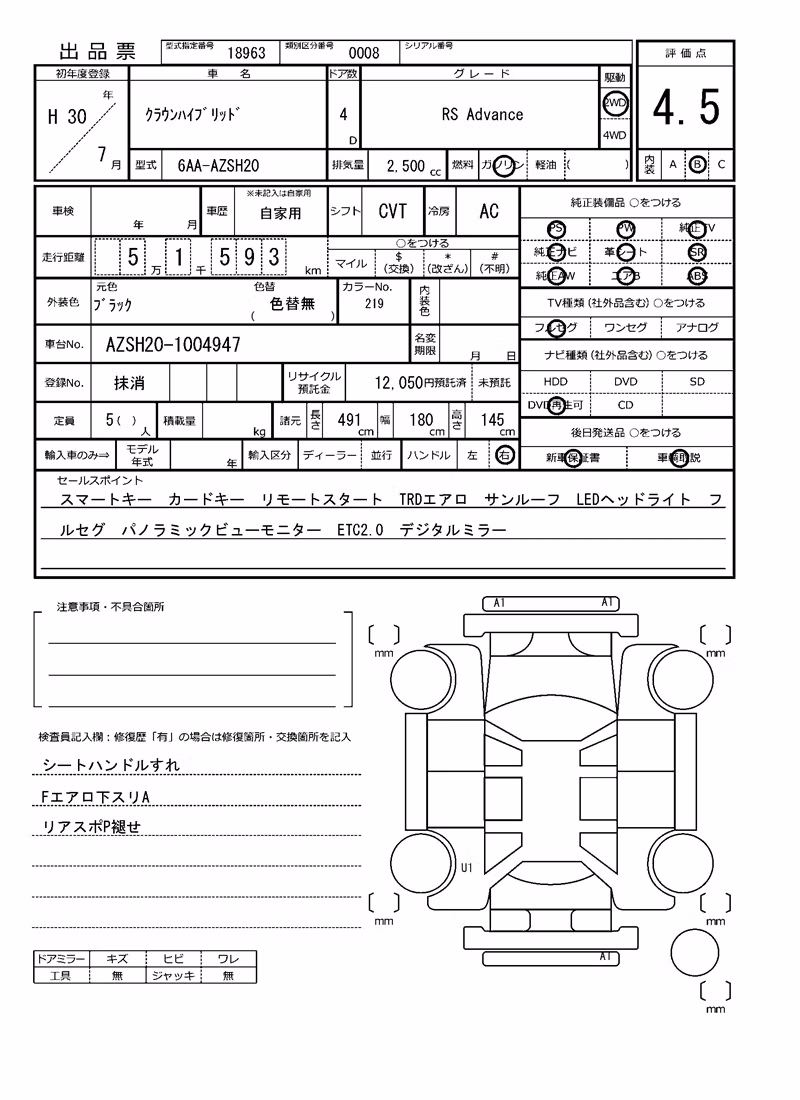 出品票 型式指定番号 18963 類別区分番号 0008 シリアル番号
評価点
初年度登録 車 名 ドア数 グレード 駆動
H 30 年 7 月 クラウンハイブリッド 4 D RS Advance 2WD 4WD
4.5
型式 6AA-AZSH20 排気量 2,500 cc 燃料 ガソリン 軽油 ( )
内装 A B C
車検 年 月 車歴 ※未記入は自家用 自家用 シフト CVT 冷房 AC
純正装備品 ○をつける
PS PW 純正TV
純正ナビ 革シート SR
純正AW エアB ABS
走行距離 5 万 1 千 5 9 3 km ○をつける
マイル $ (交換) * (改ざん) # (不明)
外装色 元色 ブラック 色替 ( 色替無 ) カラーNo. 219 内装色
TV種類 (社外品含む) ○をつける
フルセグ ワンセグ アナログ
車台No. AZSH20-1004947 名変期限 月 日
ナビ種類 (社外品含む) ○をつける
HDD DVD SD
DVD再生可 CD
登録No. 抹消 リサイクル預託金 12,050円預託済 未預託
定員 5( ) 人 積載量 kg 諸元 長さ 491 cm 幅 180 cm 高さ 145 cm
後日発送品 ○をつける
新車保証書 車輌取説
輸入車のみ⇒ モデル年式 年 輸入区分 ディーラー 並行 ハンドル 左 右
セールスポイント
スマートキー カードキー リモートスタート TRDエアロ サンルーフ LEDヘッドライト フ
ルセグ パノラミックビューモニター ETC2.0 デジタルミラー
注意事項・不具合箇所
A1 A1
mm mm
検査員記入欄：修復歴「有」の場合は修復箇所・交換箇所を記入
シートハンドルすれ
Fエアロ下スリA
リアスポP褪せ
U1
mm mm
A1
ドアミラー キズ ヒビ ワレ
工具 無 ジャッキ 無
mm